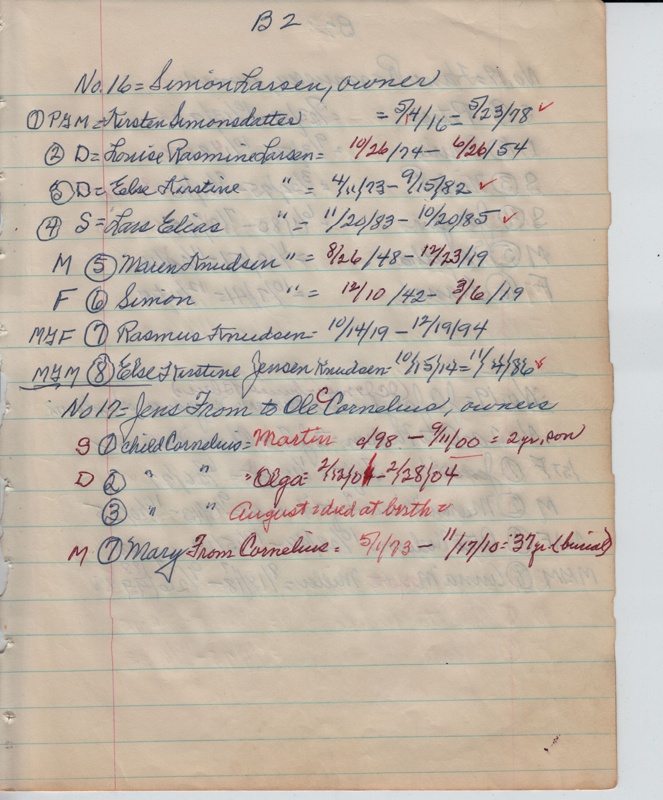 B2
No. 16 = Simon Larsen, owner
① PGM = Kirsten Simonsdatter = 5/4/16 - 5/23/78 ✓
② D = Louise Rasmine Larsen = 10/26/74 - 6/26/54
③ D = Else Kirstine " = 4/11/73 - 9/15/82 ✓
④ S = Lars Elias " = 11/20/83 - 10/20/85 ✓
M ⑤ Maren Knudsen " = 8/26/48 - 12/23/19
F ⑥ Simon " = 12/10/42 - 3/6/19
MGF ⑦ Rasmus Knudsen = 10/14/19 - 12/19/94
MGM ⑧ Else Kirstine Jensen Knudsen = 10/15/14 = 11/4/86 ✓
No 17 = Jens From to Ole C Cornelius, owners
S ① child Cornelius = Martin /98 - 9/11/00 = 2 yr, son
D ② " " " Olga = 2/12/04 - 2/28/04
③ " " August = died at birth =
M ⑦ Mary From Cornelius = 5/1/73 - 11/17/10 = 37 yr (burial)